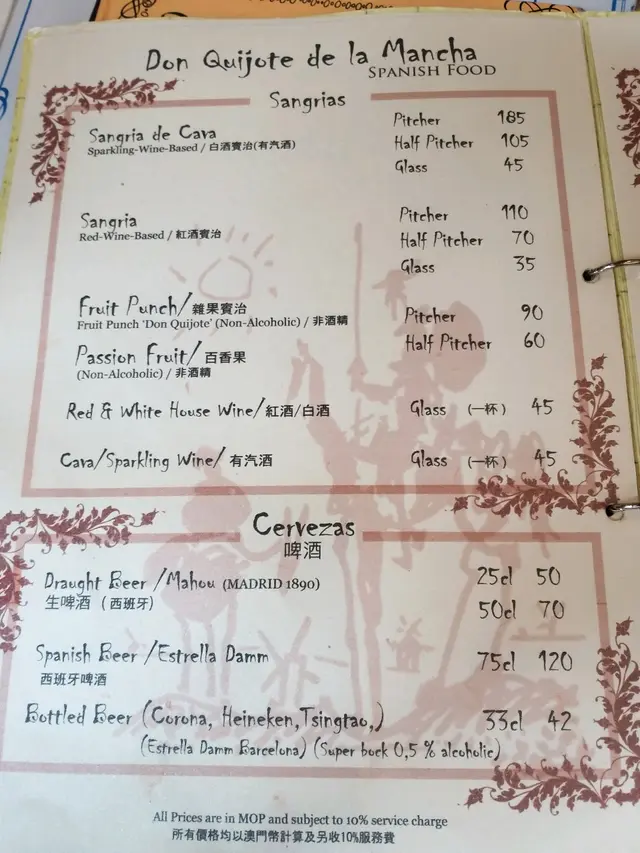 Don Quijote de la Mancha
SPANISH FOOD
Sangrias
Sangria de Cava Pitcher 185
Sparkling-Wine-Based / 白酒賓治(有汽酒) Half Pitcher 105
Glass 45
Sangria Pitcher 110
Red-Wine-Based / 紅酒賓治 Half Pitcher 70
Glass 35
Fruit Punch/ 雜果賓治 Pitcher 90
Fruit Punch 'Don Quijote' (Non-Alcoholic) / 非酒精
Passion Fruit/ 百香果 Half Pitcher 60
(Non-Alcoholic) / 非酒精
Red & White House Wine/ 紅酒/白酒 Glass (一杯) 45
Cava/Sparkling Wine/ 有汽酒 Glass (一杯) 45
Cervezas
啤酒
Draught Beer /Mahou (MADRID 1890) 25cl 50
生啤酒 (西班牙) 50cl 70
Spanish Beer /Estrella Damm 75cl 120
西班牙啤酒
Bottled Beer (Corona, Heineken,Tsingtao,) 33cl 42
(Estrella Damm Barcelona) (Super bock 0,5 % alcoholic)
All Prices are in MOP and subject to 10% service charge
所有價格均以澳門幣計算及另收10%服務費